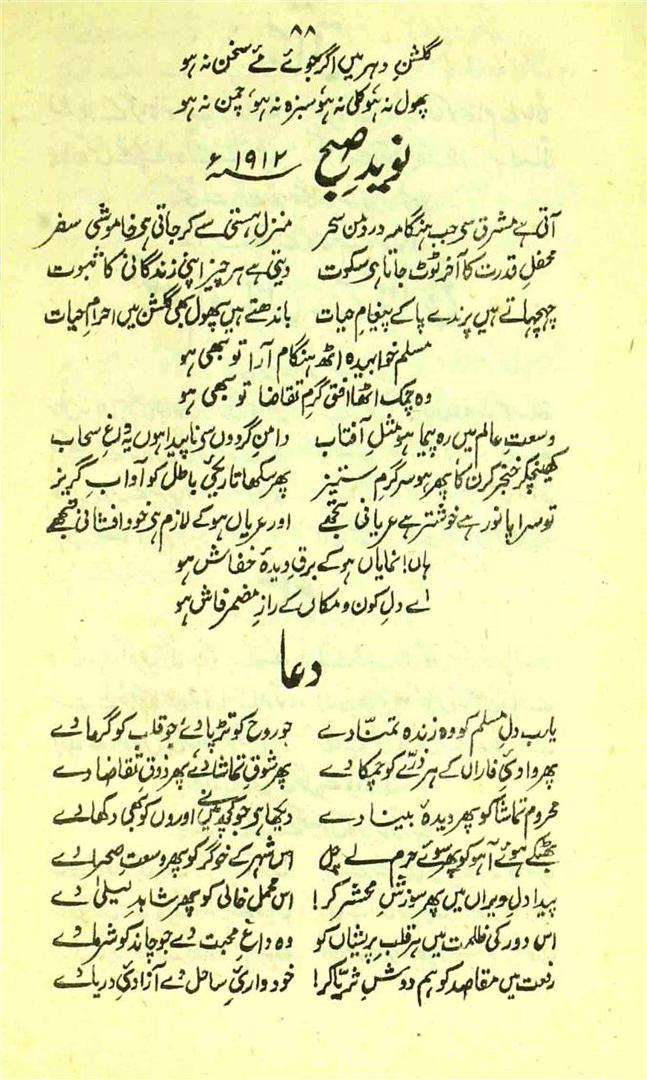 ۸۸
گلشنِ دہر میں اگر جوئے مے سخن نہ ہو
پھول نہ ہو، کلی نہ ہو، سبزہ نہ ہو، چمن نہ ہو
نویدِ صبح ۱۹۱۲ء
آتی ہے مشرق سے جب ہنگامہ در دامن سحر منزلِ ہستی سے کر جاتی ہے خاموشی سفر
محفلِ قدرت کا آخر ٹوٹ جاتا ہے سکوت دیتی ہے ہر چیز اپنی زندگانی کا ثبوت
چہچہاتے ہیں پرندے پا کے پیغامِ حیات باندھتے ہیں پھول بھی گلشن میں احرامِ حیات
مسلمِ خوابیدہ اٹھ ہنگامہ آرا تو بھی ہو
وہ چمک اٹھا افق گرمِ تقاضا تو بھی ہو
وسعتِ عالم میں رہ پیما ہو مثلِ آفتاب دامنِ گردوں سے ناپیدا ہوں یہ داغِ سحاب
کھینچ کر خنجر کرن کا پھر ہو سرگرمِ ستیز پھر سکھا تاریکیِ باطل کو آدابِ گریز
تو سراپا نور ہے خوشتر ہے عریانی تجھے اور عریاں ہو کے لازم ہے خود افشانی تجھے
ہاں! نمایاں ہو کے برقِ دیدۂ خفاش ہو
اے دلِ کون و مکاں کے رازِ مضمر فاش ہو
دعا
یارب دلِ مسلم کو وہ زندہ تمنّا دے جو روح کو تڑپا دے جو قلب کو گرما دے
پھر وادیِ فاراں کے ہر ذرّے کو چمکا دے پھر شوقِ تماشا دے پھر ذوقِ تقاضا دے
محرومِ تماشا کو پھر دیدۂ بینا دے دیکھا ہے جو کچھ میں نے اوروں کو بھی دکھلا دے
بھٹکے ہوئے آہو کو پھر سوئے حرم لے چل اس شہر کے خوگر کو پھر وسعتِ صحرا دے
پیدا دلِ ویراں میں پھر سوزشِ محشر کر! اس محملِ خالی کو پھر شاہدِ لیلیٰ دے
اس دور کی ظلمت میں ہر قلبِ پریشاں کو وہ داغِ محبت دے جو چاند کو شرما دے
رفعت میں مقاصد کو ہم دوشِ ثریّا کر! خودداریِ ساحل دے آزادیِ دریا دے